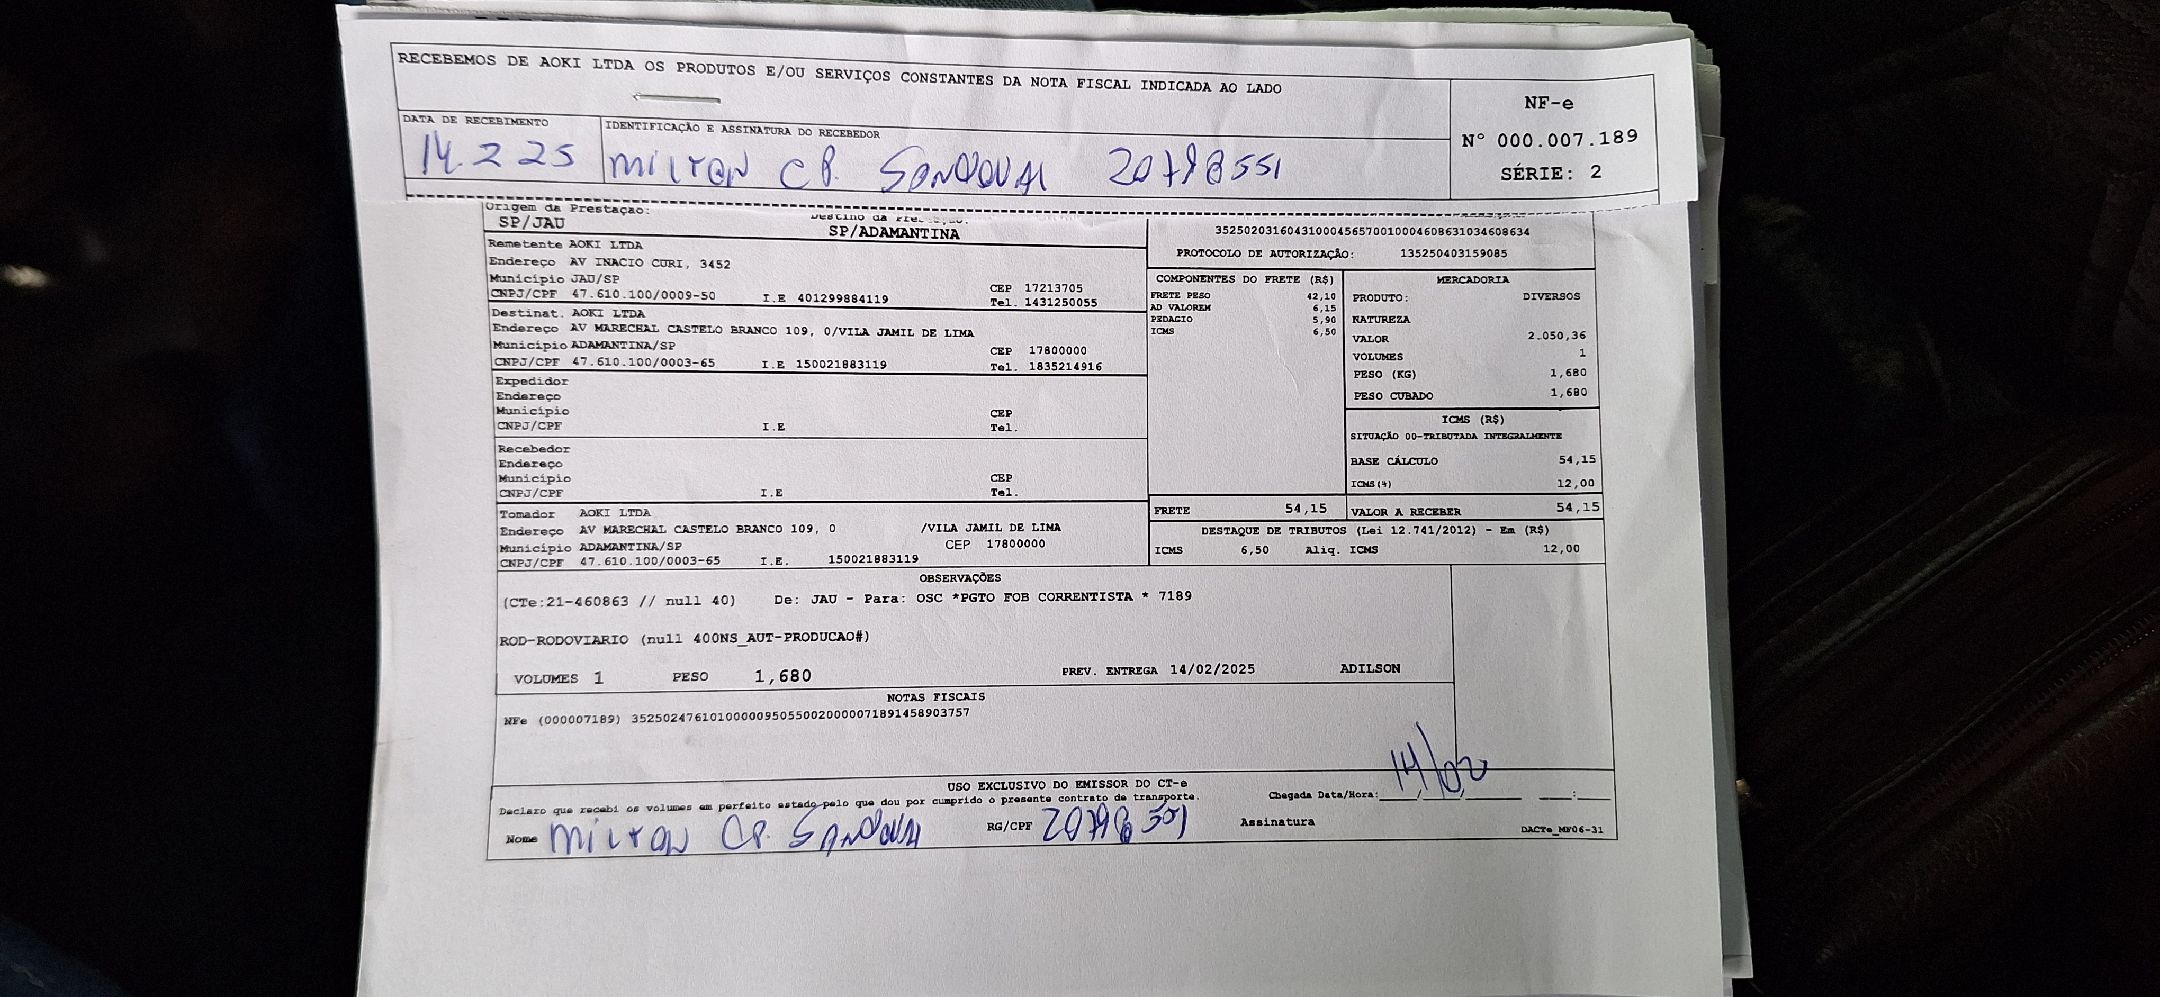 RECEBEMOS DE AOKI LTDA OS PRODUTOS E/OU SERVIÇOS CONSTANTES DA NOTA FISCAL INDICADA AO LADO
NF-e
Nº 000.007.189
SÉRIE: 2
DATA DE RECEBIMENTO
14.2 25
IDENTIFICAÇÃO E ASSINATURA DO RECEBEDOR
MILTON CP. SANDOVAL 20798551
Origem da Prestação:
SP/JAU
Destino da
SP/ADAMANTINA
Remetente AOKI LTDA
Endereço AV INACIO CURI, 3452
Município JAU/SP CEP 17213705
CNPJ/CPF 47.610.100/0009-50 I.E 401299884119 Tel. 1431250055
Destinat. AOKI LTDA
Endereço AV MARECHAL CASTELO BRANCO 109, 0/VILA JAMIL DE LIMA
Município ADAMANTINA/SP CEP 17800000
CNPJ/CPF 47.610.100/0003-65 I.E 150021883119 Tel. 1835214916
Expedidor
Endereço
Município CEP
CNPJ/CPF I.E Tel.
Recebedor
Endereço
Município CEP
CNPJ/CPF I.E Tel.
Tomador AOKI LTDA
Endereço AV MARECHAL CASTELO BRANCO 109, 0 /VILA JAMIL DE LIMA
Município ADAMANTINA/SP CEP 17800000
CNPJ/CPF 47.610.100/0003-65 I.E. 150021883119
35250203160431000456570010004608631034608634
PROTOCOLO DE AUTORIZAÇÃO: 135250403159085
COMPONENTES DO FRETE (R$)
FRETE PESO 42,10
AD VALOREM 6,15
PEDAGIO 5,90
ICMS 6,50
MERCADORIA
PRODUTO: DIVERSOS
NATUREZA
VALOR 2.050,36
VOLUMES 1
PESO (KG) 1,680
PESO CUBADO 1,680
ICMS (R$)
SITUAÇÃO 00-TRIBUTADA INTEGRALMENTE
BASE CÁLCULO 54,15
ICMS(%) 12,00
FRETE 54,15 VALOR A RECEBER 54,15
DESTAQUE DE TRIBUTOS (Lei 12.741/2012) - Em (R$)
ICMS 6,50 Aliq. ICMS 12,00
OBSERVAÇÕES
(CTe:21-460863 // null 40) De: JAU - Para: OSC *PGTO FOB CORRENTISTA * 7189
ROD-RODOVIARIO (null 400NS_AUT-PRODUCAO#)
VOLUMES 1 PESO 1,680 PREV. ENTREGA 14/02/2025 ADILSON
NOTAS FISCAIS
NFe (000007189) 35250247610100000950550020000071891458903757
USO EXCLUSIVO DO EMISSOR DO CT-e
Declaro que recebi os volumes em perfeito estado pelo que dou por cumprido o presente contrato de transporte.
Chegada Data/Hora: 14/02
Nome MILTON CP. SANDOVAL RG/CPF 20798551 Assinatura
DACTe_MF06-31